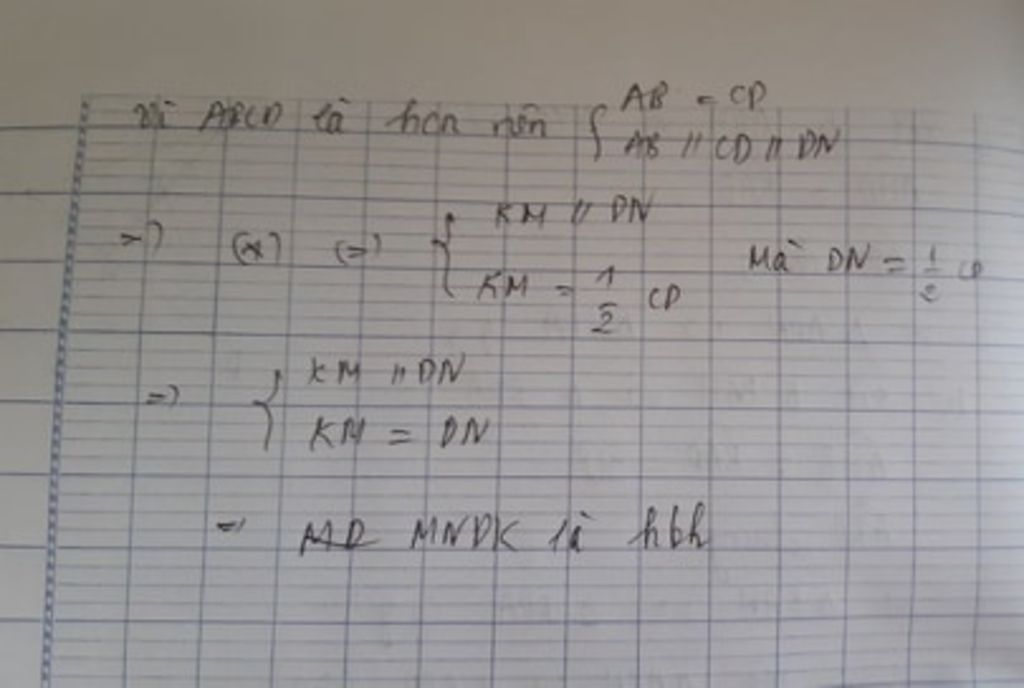 Vì ABCD là hcn nên { AB = CD
AB // CD // DN
=> (*) <=> { KM // DN
KM = 1/2 CD Mà DN = 1/2 CD
=> { KM // DN
KM = DN
=> MNDK là hbh